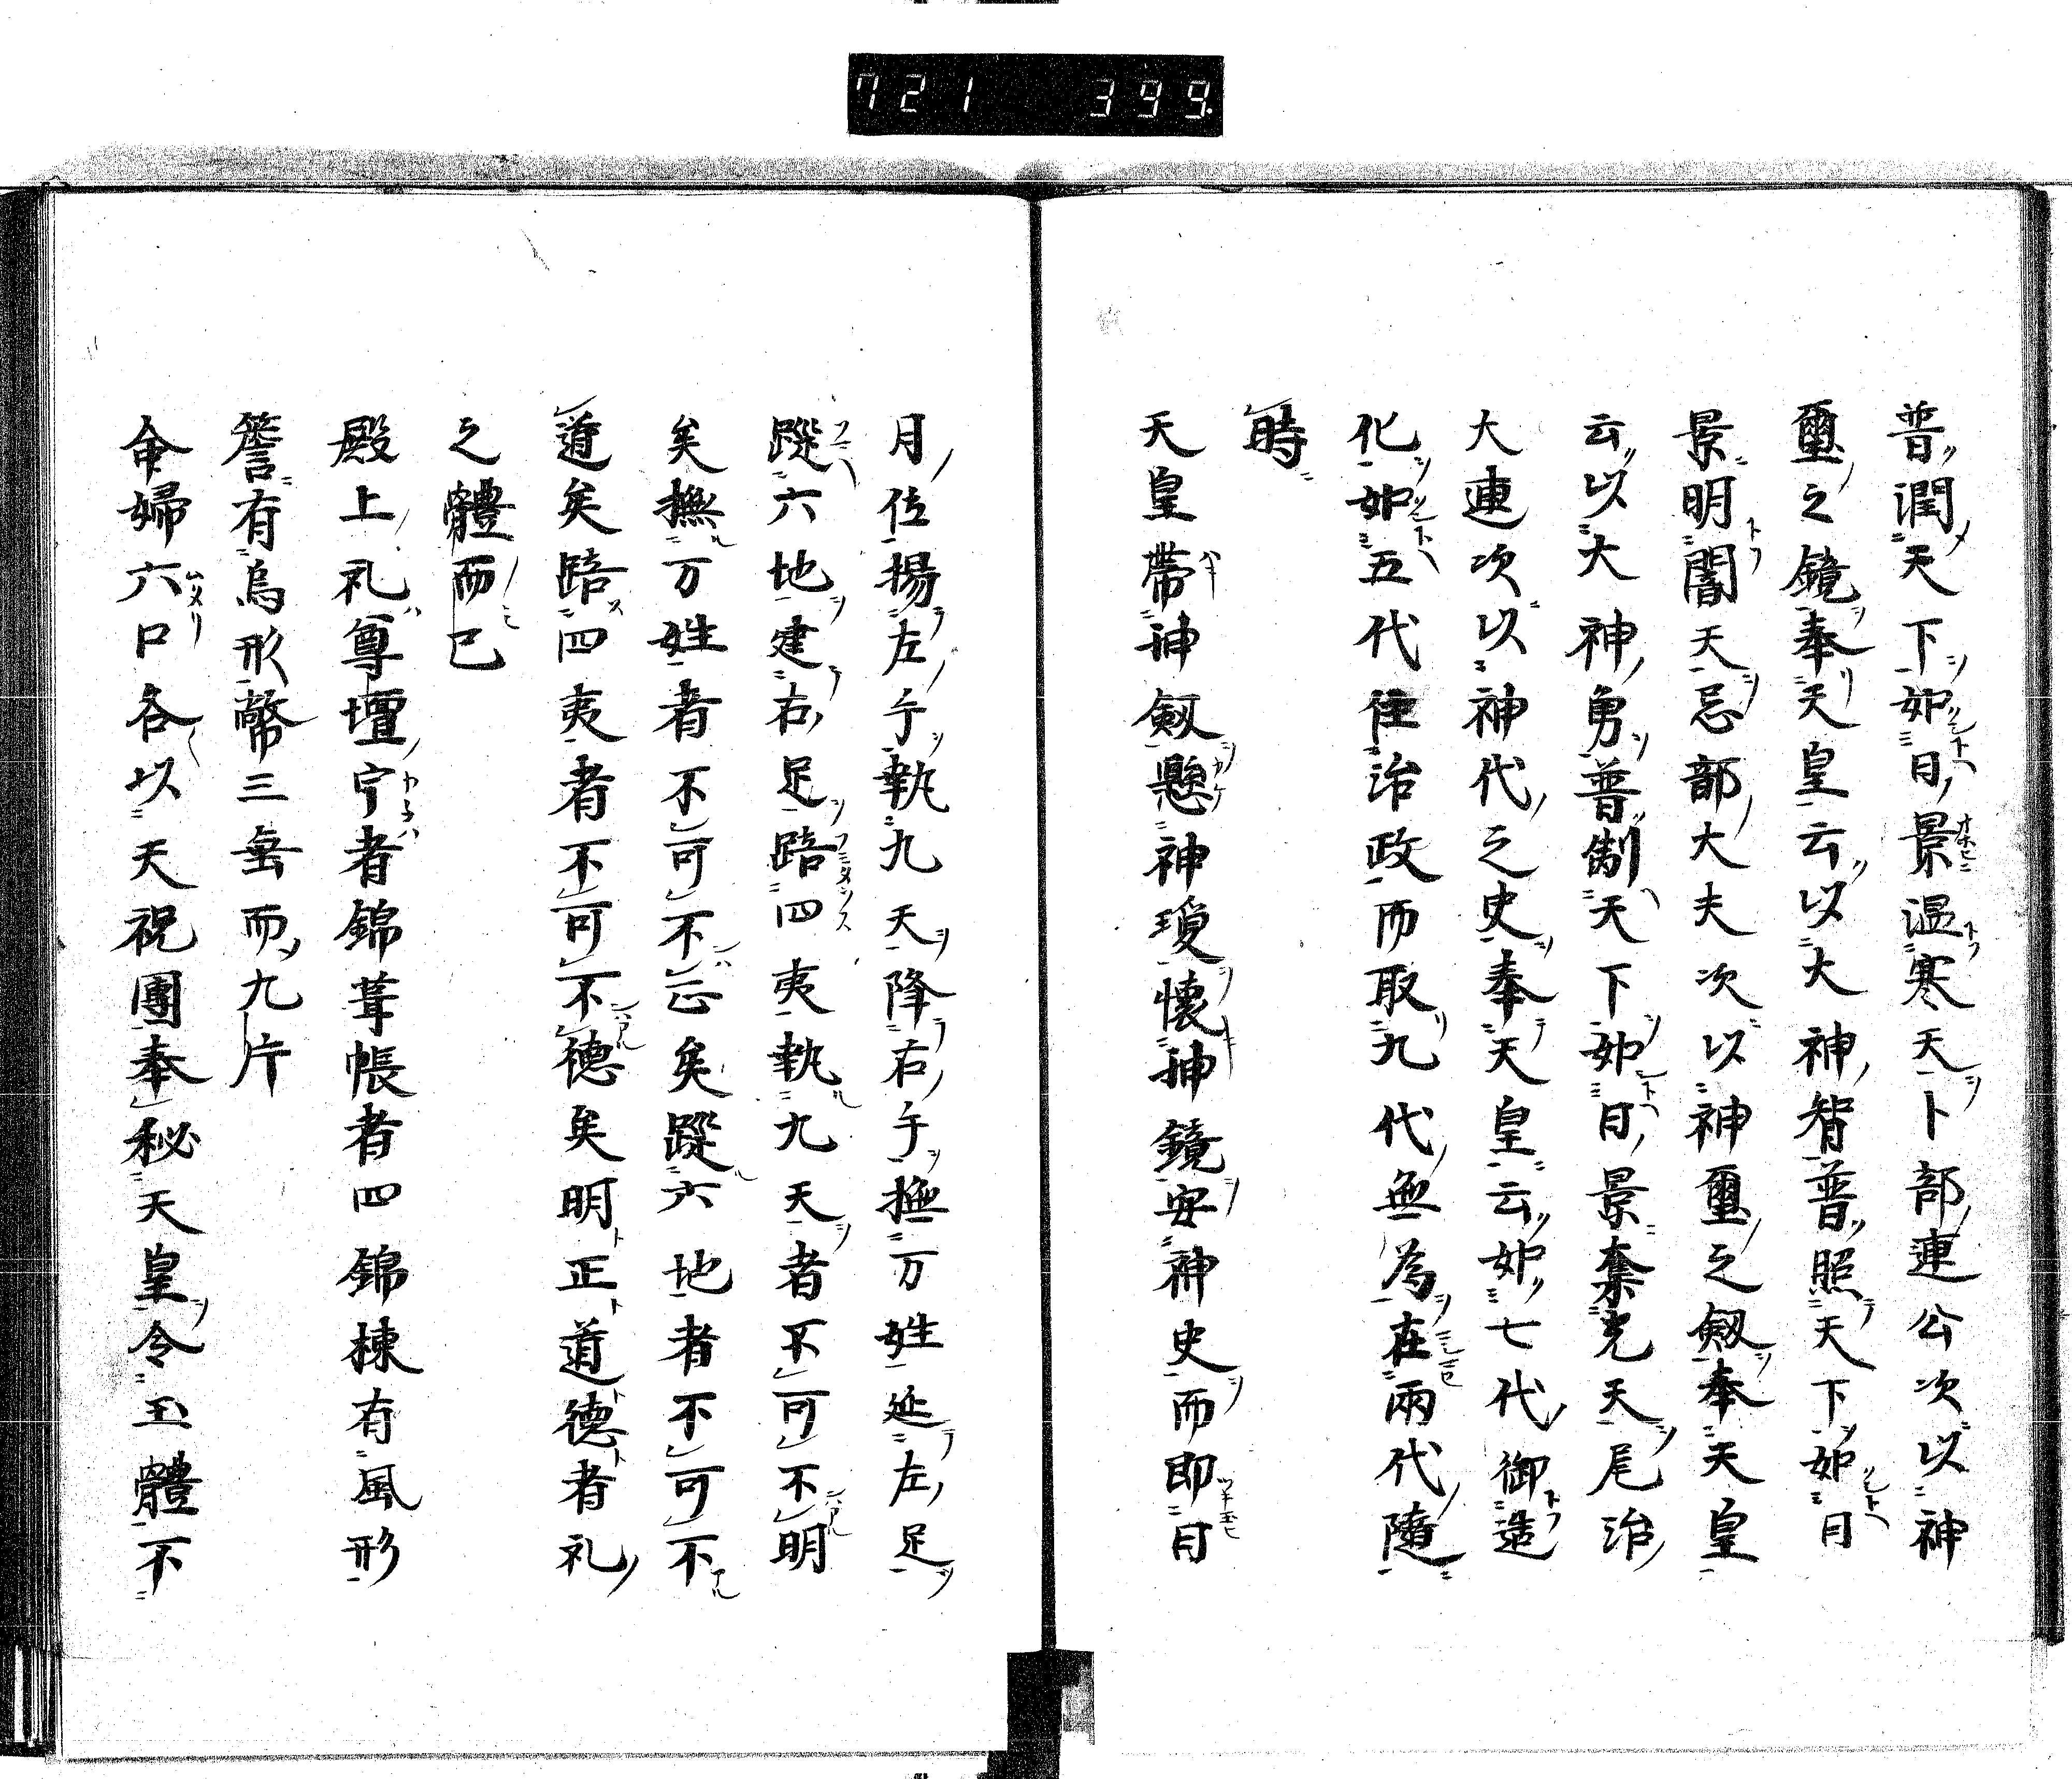 721 399.
普潤天下如日景温寒天卜部連公次以神
璽之鏡奉天皇云以大神智普照天下如日
景明闇天忌部大夫次以神璽之劔奉天皇
云以大神勇普制天下如日景奪光天尾治
大連次以神代之史奉天皇云如七代御造
化如五代往治政而取九代無為在兩代隨
時
天皇帶神劔懸神瓊懷神鏡安神史而即日
月位揚左手執九天降右手撫万姓延左足
蹤六地建右足踣四夷執九天者不可不明
矣撫万姓者不可不正矣蹤六地者不可不
道矣踣四夷者不可不德矣明正道德者礼
之體而已
殿上礼尊壇宁者錦葺帳者四錦棟有風形
簷有烏形幣三垂而九片
命婦六口各以天祝團奉秘天皇令玉體不